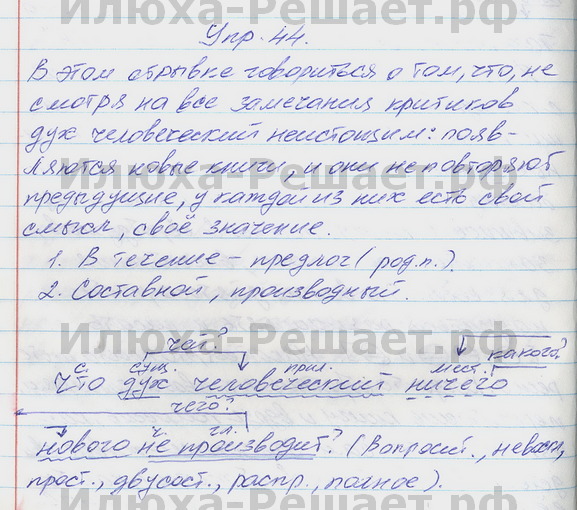 Илюха-Решает.рф
Упр. 44.
В этом отрывке говориться о том, что, не
смотря на все замечания критиков
дух человеческий неистощим: появ-
ляются новые книги, и они не повторяют
предыдущие, у каждой из них есть свой
смысл, своё значение.
1. В течение – предлог (род.п.).
2. Составной, производный.
чей? какого?
с. сущ. прил. мест.
что дух человеческий ничего
чего?
ч. гл.
нового не производит? (Вопросит., невоскл,
прост., двусост., распр., полное).
Илюха-Решает.рф